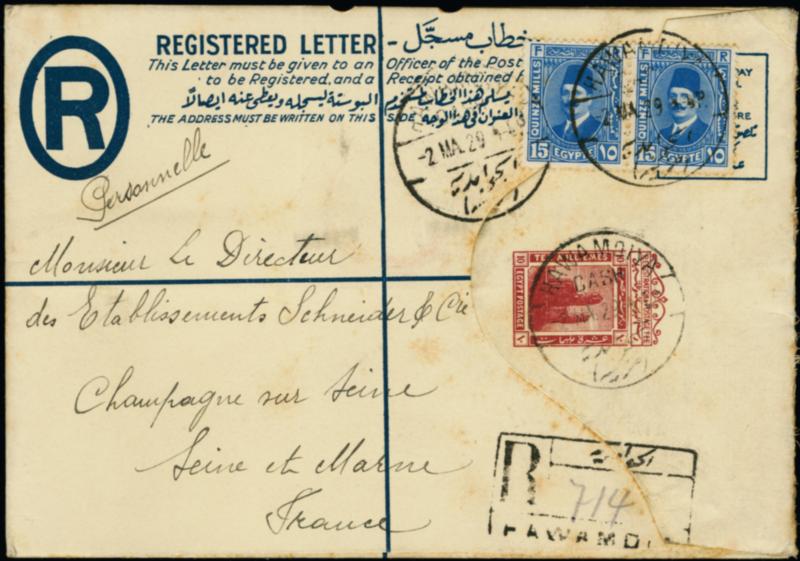 R
REGISTERED LETTER - خطاب مسجّل
This Letter must be given to an Officer of the Post
to be Registered, and a Receipt obtained f
يسلم هذا الخطاب لمستخدم البوستة ليسجله ويعطى عنه ايصالا
THE ADDRESS MUST BE WRITTEN ON THIS SIDE والعنوان فى هذا الوجه
Personnelle
Monsieur Le Directeur
des Etablissements Schneider & Cie
Champagne sur Seine
Seine et Marne
France
F
QUINZE MILLS
15 EGYPTE ١٥
F R
QUINZE MILLS
15 ١٥
2 MA. 29
-2 MA. 29
الحوامدية
TE
10 10
EGYPT POSTAGE
HAWAMDIYA
CASH
MA 2
R
714
HAWAMD